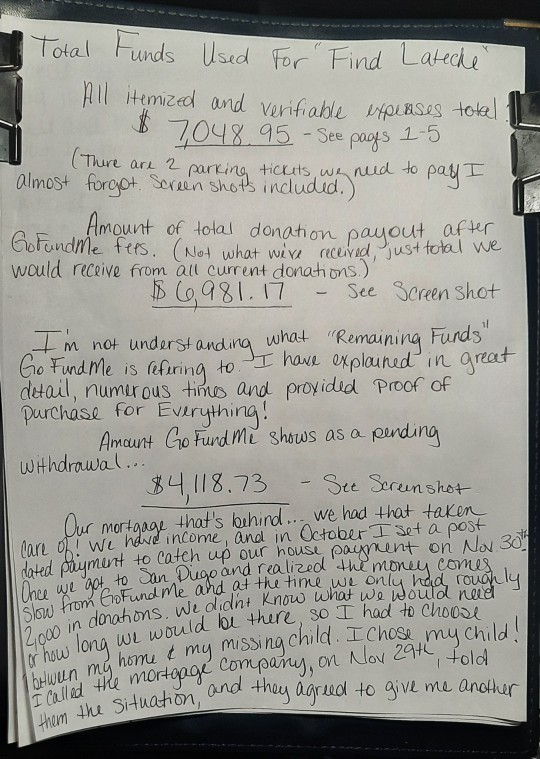 Total Funds Used For "Find Lateche"
All itemized and verifiable expenses total
$ 7,048.95 - See pages 1-5
(There are 2 parking tickets we need to pay I
almost forgot. Screen shots included.)
Amount of total donation payout after
GoFundMe fees. (Not what we've received, just total we
would receive from all current donations.)
$6,981.17 - See Screen shot
I'm not understanding what "Remaining Funds"
Go FundMe is refering to. I have explained in great
detail, numerous times and provided Proof of
Purchase for Everything!
Amount Go FundMe shows as a pending
withdrawal...
$4,118.73 - See Screenshot
Our mortgage that's behind... we had that taken
care of! We have income, and in October I set a post
dated payment to catch up our house payment on Nov 30th
Once we got to San Diego and realized the money comes
slow from GoFundMe and at the time we only had roughly
2,000 in donations. We didn't know what we would need
or how long we would be there, so I had to choose
between my home & my missing child. I chose my child!
I called the mortgage company, on Nov 29th, told
them the situation, and they agreed to give me another